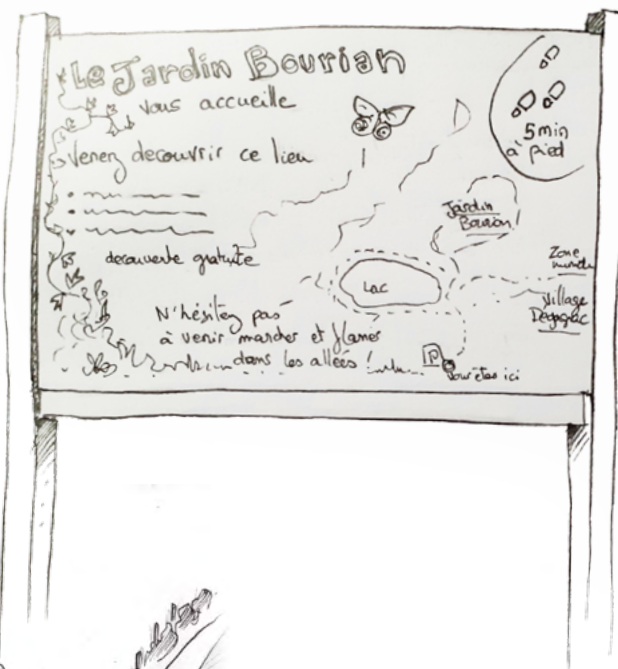 Le Jardin Bourian
vous accueille
Venez decouvrir ce lieu
decouverte gratuite
N'hésitez pas
à venir marcher et flaner
dans les allées !
5 min
à pied
Jardin
Bourian
Lac
Zone
Village
Dégagnac
P
Vous êtes ici